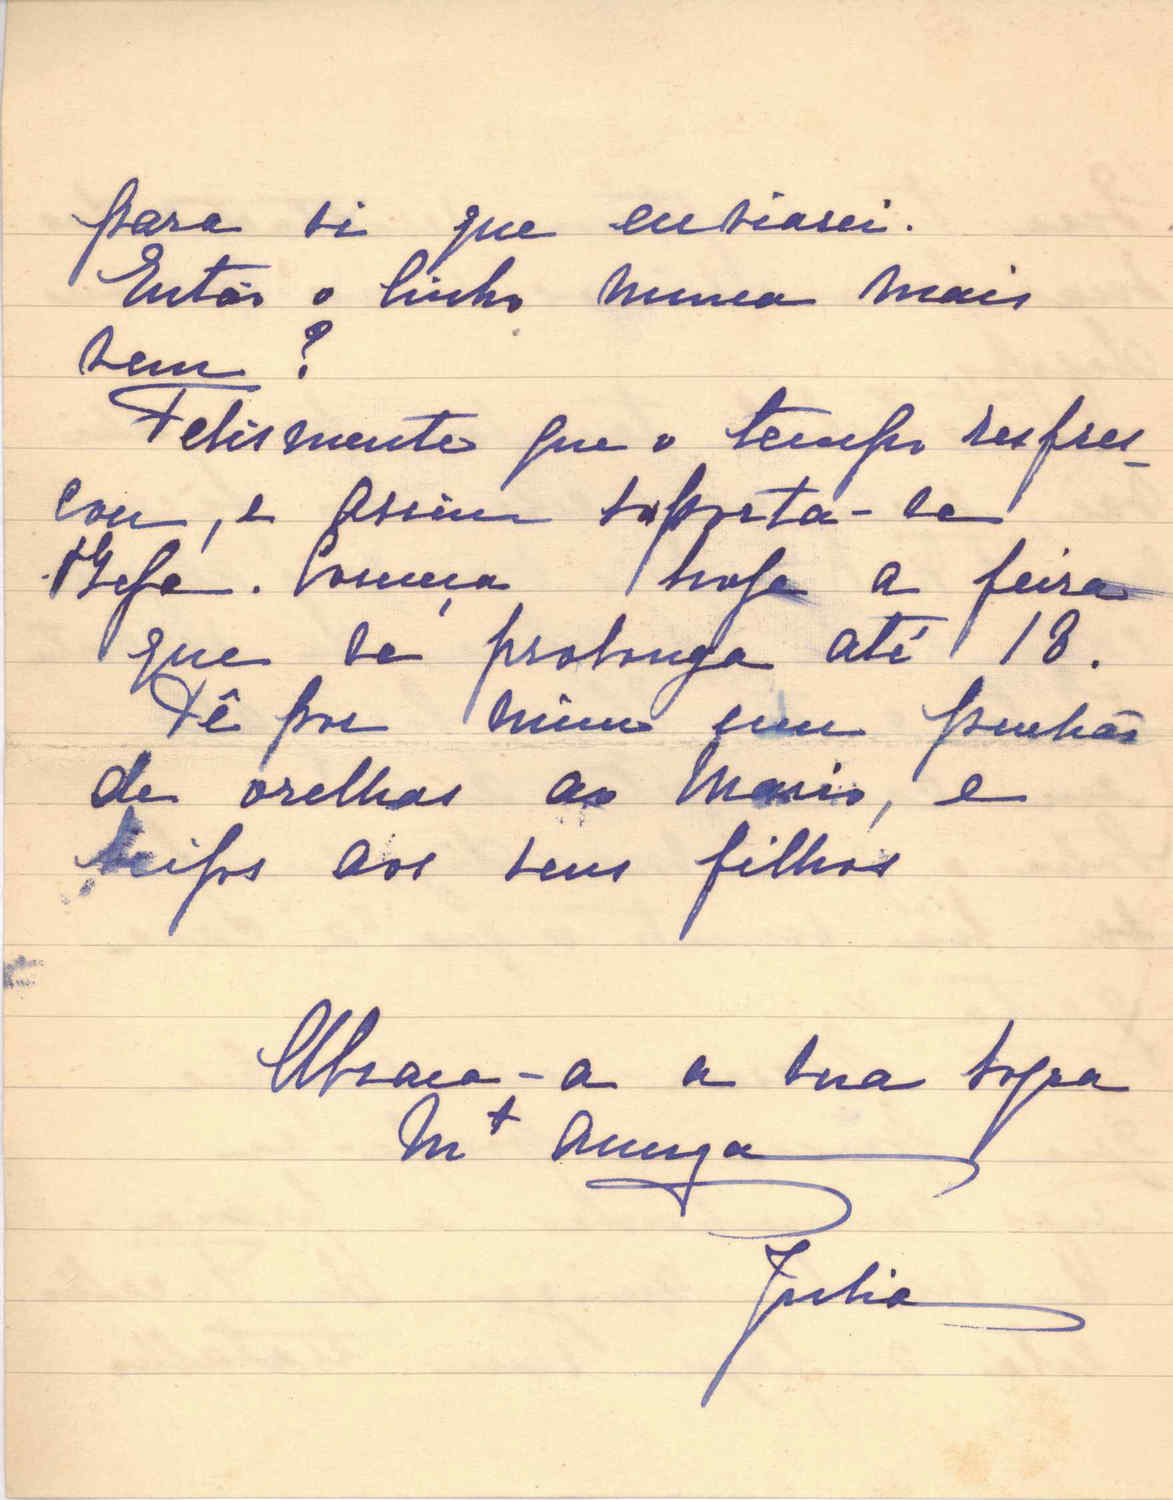 para si que enviarei.
Então o linho nunca mais
vem?
Felismente que o tempo resfres-
cou, e assim suporta-se
Beja. Começa hoje a feira
que se prolonga até 18.
Dê por mim um puchão
de orelhas ao Mario, e
beijos aos seus filhos
Abraça-a a sua sogra
Mt amiga
Julia